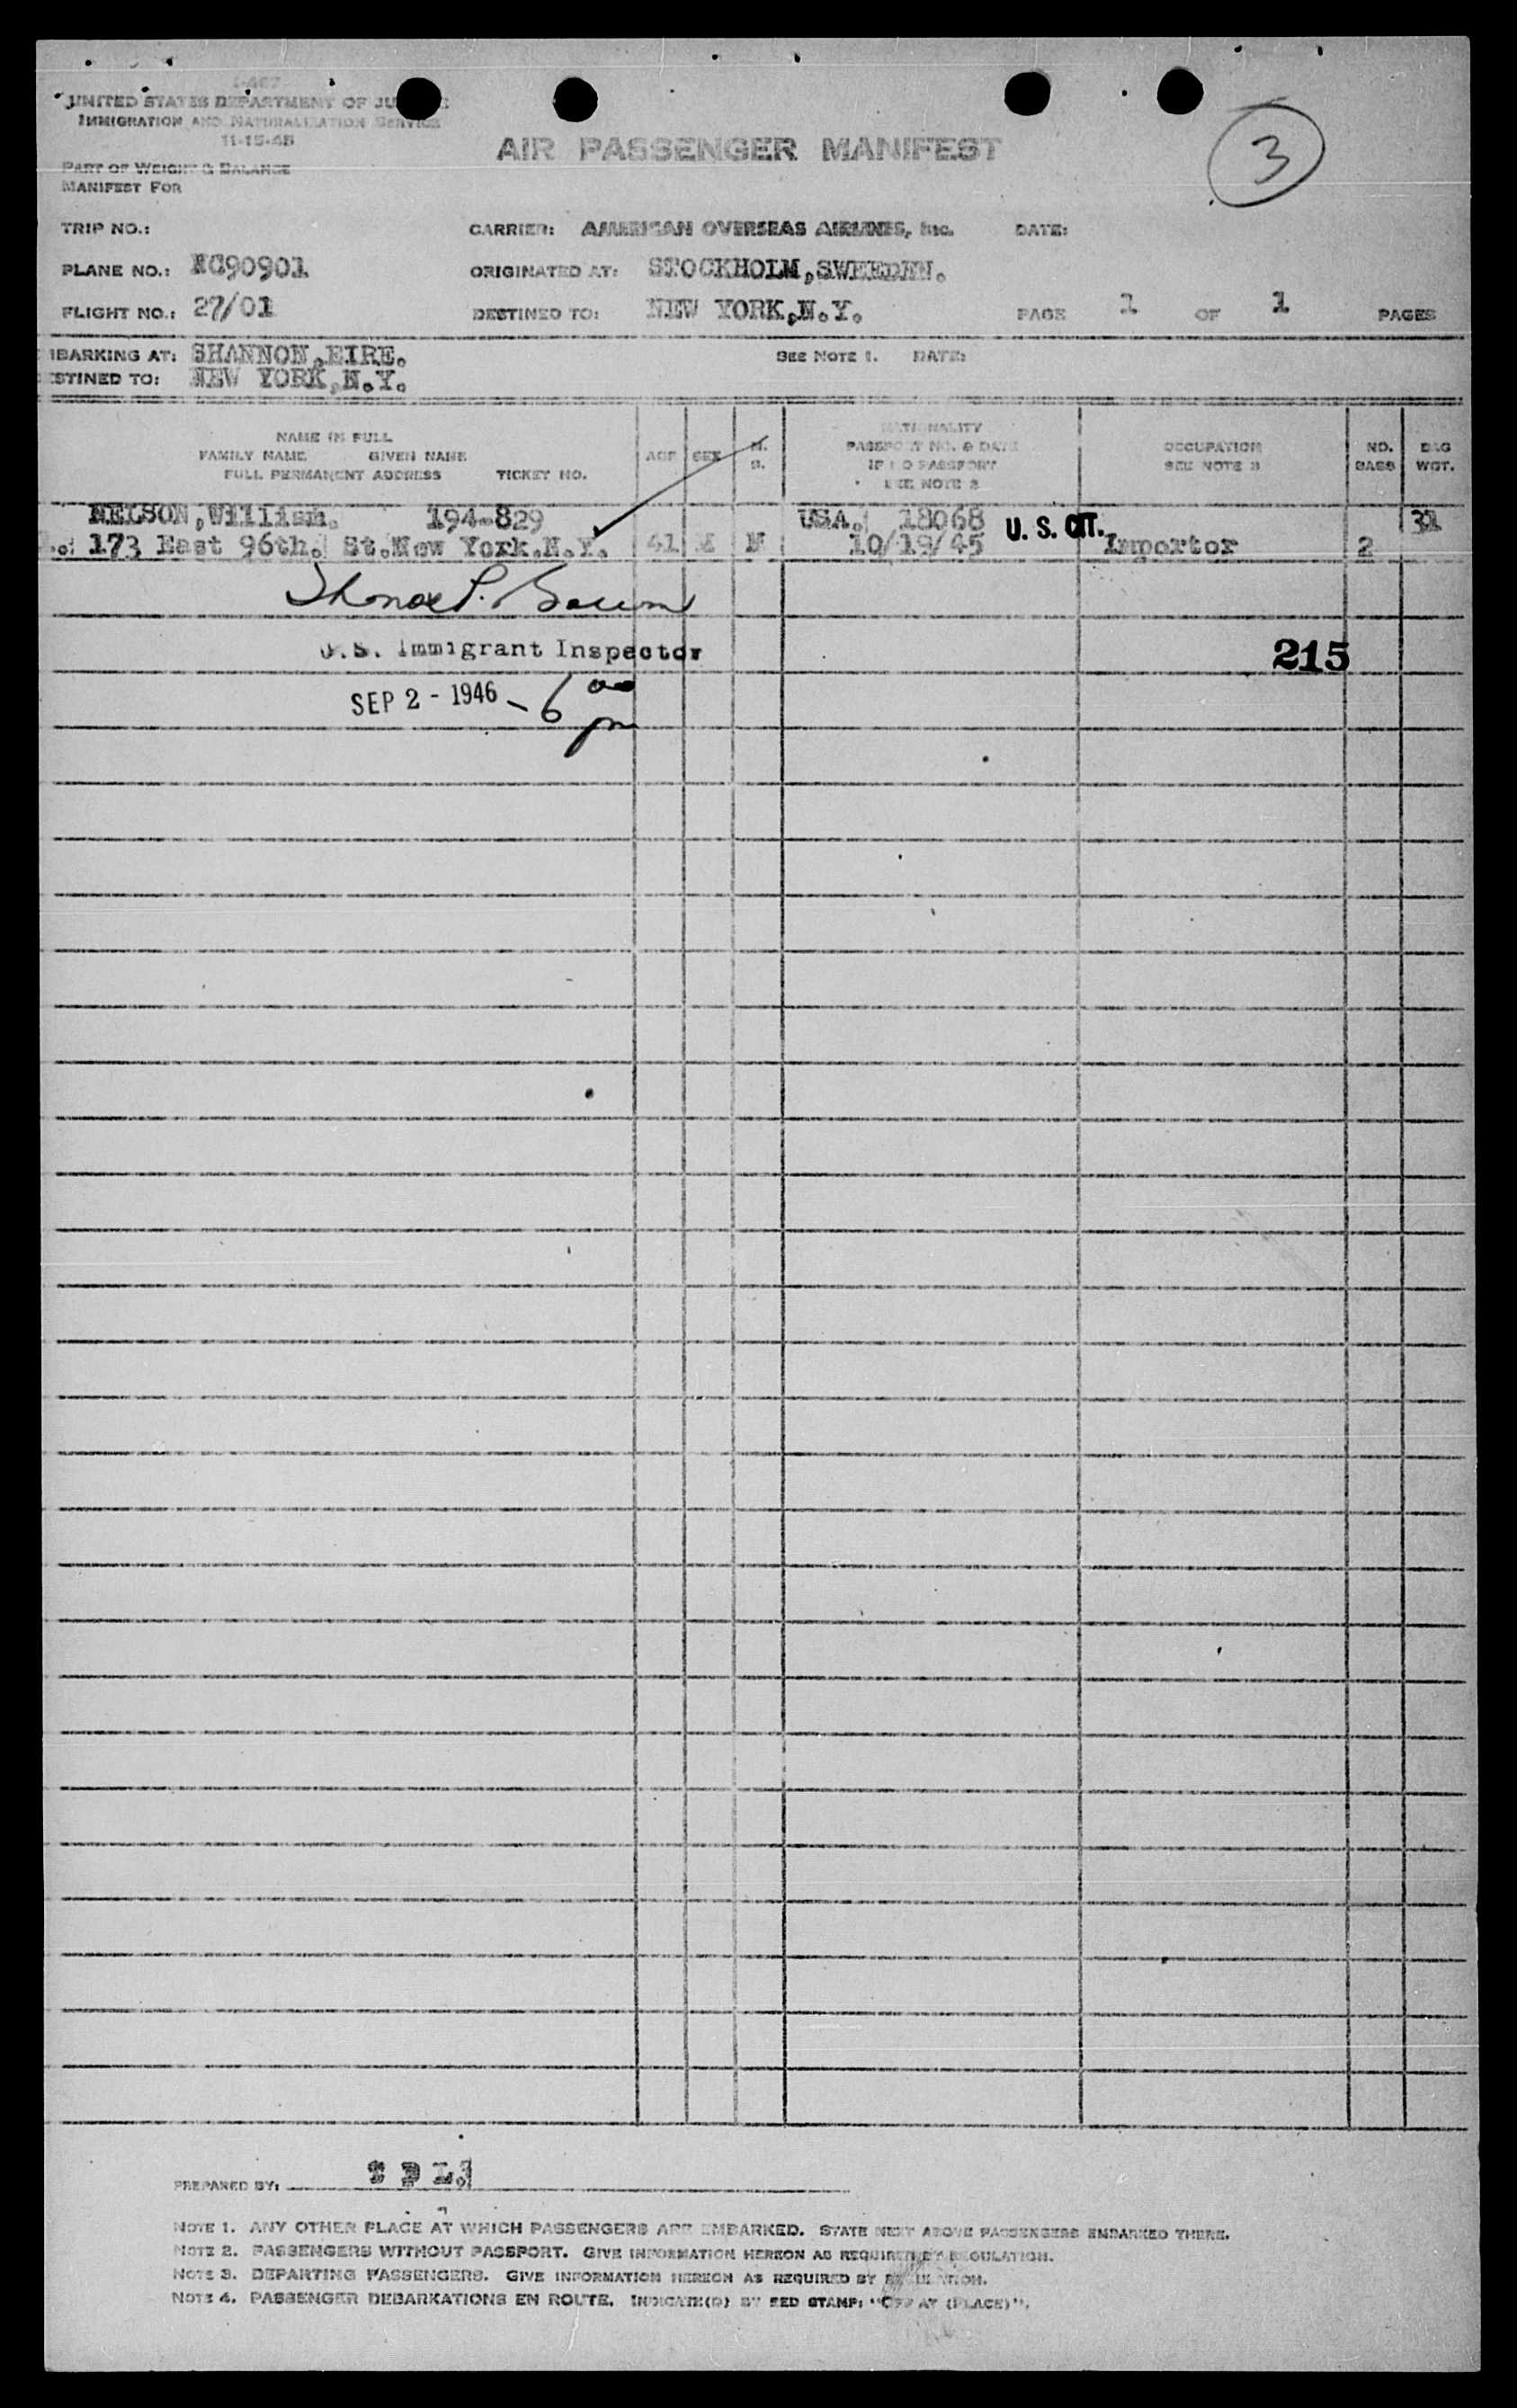 UNITED STATES DEPARTMENT OF
IMMIGRATION AND NATURALIZATION SERVICE
11-15-45
AIR PASSENGER MANIFEST
3
PART OF WEIGHT & BALANCE
MANIFEST FOR
TRIP NO.: CARRIER: AMERICAN OVERSEAS AIRLINES, INC. DATE:
PLANE NO.: NC90901 ORIGINATED AT: STOCKHOLM,SWEEDEN.
FLIGHT NO.: 27/01 DESTINED TO: NEW YORK,N.Y. PAGE 1 OF 1 PAGES
MBARKING AT: SHANNON,EIRE. SEE NOTE 1. DATE:
ESTINED TO: NEW YORK,N.Y.
NAME IN FULL
FAMILY NAME GIVEN NAME
FULL PERMANENT ADDRESS TICKET NO.
AGE SEX M. S.
NATIONALITY
PASSPORT NO. & DATE
IF NO PASSPORT
SEE NOTE 2
OCCUPATION
SEE NOTE 3
NO. BAGS
BAG WGT.
NELSON,William. 194-829 USA. 18068 U. S. CIT. 31
173 East 96th. St.New York.N.Y. 41 M 10/19/45 Importer 2
U.S. Immigrant Inspector
215
SEP 2 - 1946 - 6 00 pm
PREPARED BY:
NOTE 1. ANY OTHER PLACE AT WHICH PASSENGERS ARE EMBARKED. STATE NEXT ABOVE PASSENGERS EMBARKED THERE.
NOTE 2. PASSENGERS WITHOUT PASSPORT. GIVE INFORMATION HEREON AS REQUIRED BY REGULATION.
NOTE 3. DEPARTING PASSENGERS. GIVE INFORMATION HEREON AS REQUIRED BY REGULATION.
NOTE 4. PASSENGER DEBARKATIONS EN ROUTE. INDICATE(D) BY RED STAMP: "OFF AT (PLACE)".